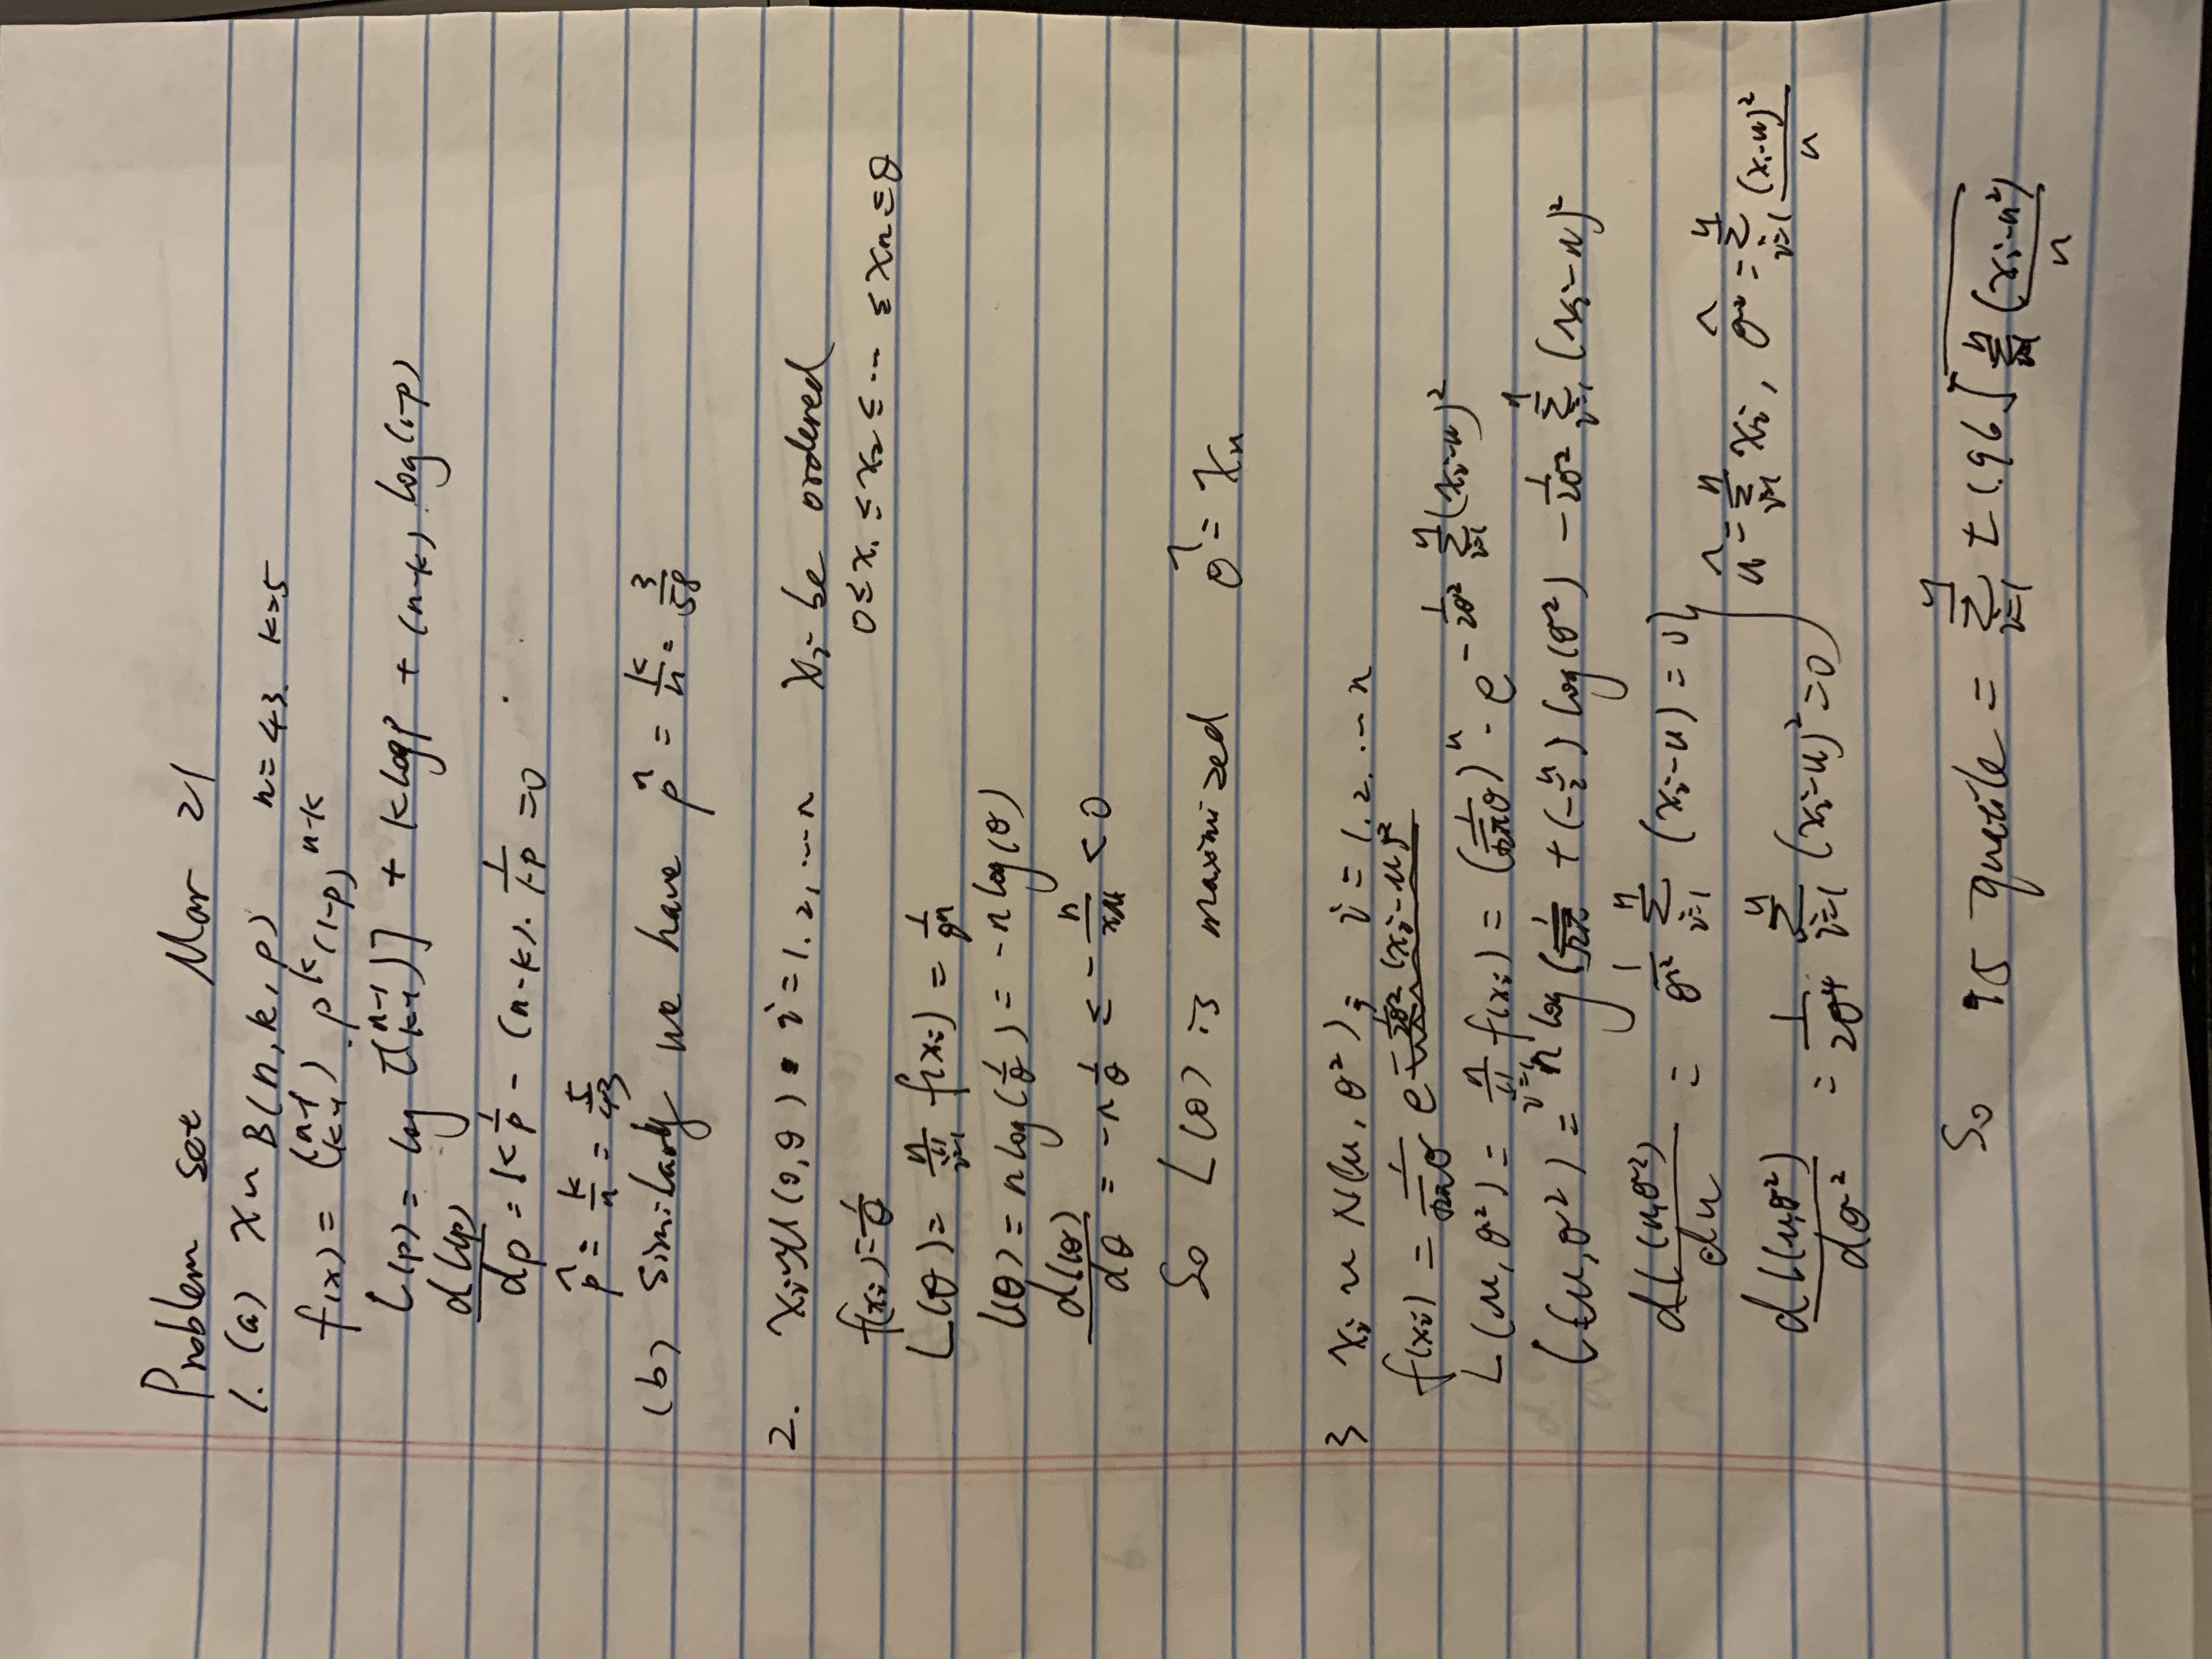 Problem set Mar 21
1. (a) X ~ B(n, k, p) n = 43. k=5
f(x) = (n-1 k-1) . p^k (1-p)^n-k
l(p) = log [(n-1 k-1)] + k log p + (n-k) log(1-p)
dl(p)/dp = k 1/p - (n-k). 1/1-p = 0
p̂ = k/n = 5/43
(b) Similarly we have p̂ = k/n = 3/58
2. Xi ~ U(0,θ). i = 1. 2, ... n Xi be ordered
f(xi) = 1/θ 0 ≤ x1 ≤ x2 ≤ ... ≤ xn ≤ θ
L(θ) = ∏ i=1 n f(xi) = 1/θ^n
l(θ) = n log(1/θ) = -n log(θ)
dl(θ)/dθ = -n 1/θ ≤ - n/xn < 0
So L(θ) is maximized θ̂ = Xn
3 Xi ~ N(u, σ²), i = 1. 2. ... n
f(xi) = 1/√2π σ e^-1/2σ² (xi-u)²
L(u, σ²) = ∏ i=1 n f(xi) = (1/√2π σ)^n · e^-1/2σ² Σ i=1 n (xi-u)²
l(u, σ²) = n log (1/√2π + (-n/2) log(σ²) - 1/2σ² Σ i=1 n (xi-u)²
dl(u,σ²)/du = 1/σ² Σ i=1 n (xi-u) = 0
dl(u,σ²)/dσ² = 1/2σ⁴ Σ i=1 n (xi-u)² = 0
} û = Σ i=1 n xi, σ̂² = Σ i=1 n (xi-u)²/n
So 95 = Σ i=1 n ± 1.96 √Σ i=1 n (xi-u²)/n